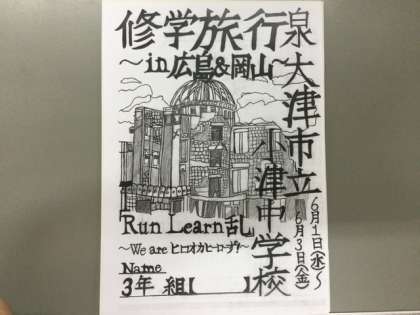 修学旅行
～in広島&岡山～
泉大津市立
小津中学校
6月1日(水)～
6月3日(金)
Run Learn乱
～We are ヒロオカヒーローズ!～
Name
3年 組【 】